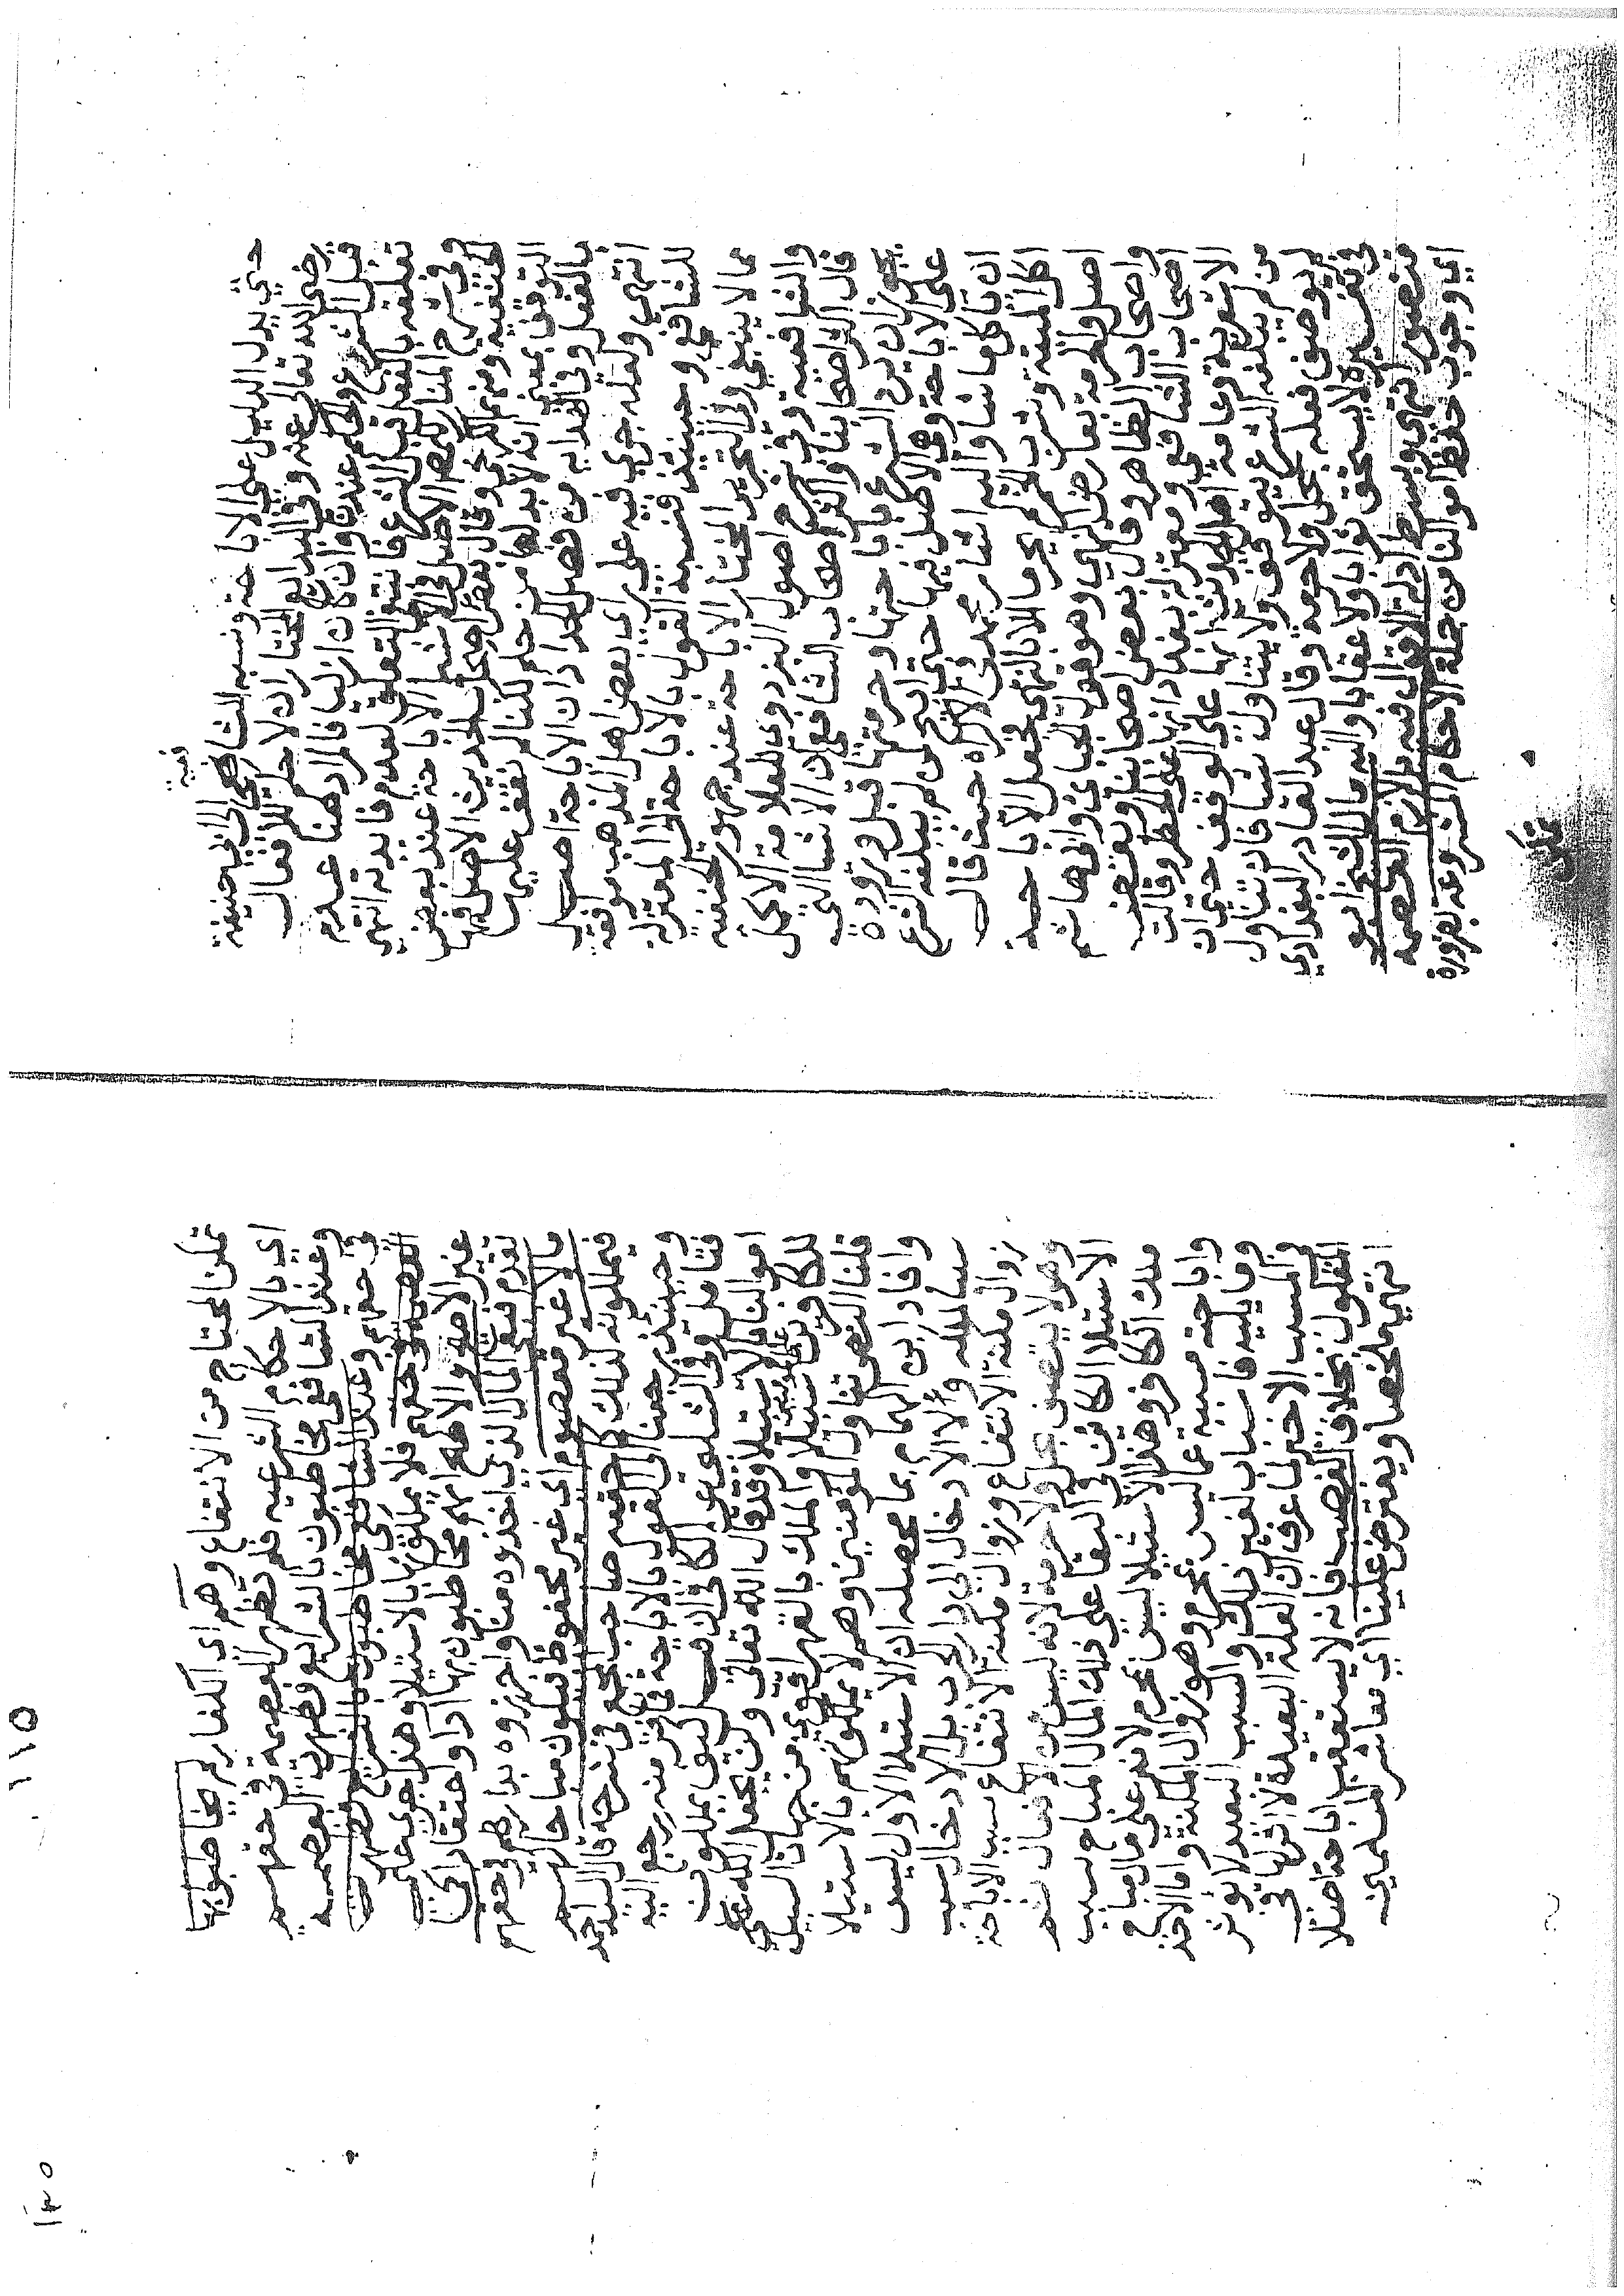 حتى يدل الدليل على الاباحة ونسبه الشافعي الى ابي حنيفة
رضي الله تعالى عنه وفي البدايع المختار ان لا حكم للافعال
قبل الشرع والحكم عندنا وان كان ازليا فالمراد هنا عدم
تعلقه بالفعل قبل الشرع فانتفى التعلق لعدم فايدته انتهى
وفي شرح المنار للمص الاصل في الاشيا الاباحة عند بعض
الحنفية ومنهم الكرخي وقال بعض اصحاب الحديث الاصل فيها
التوقف بمعنى انه لا بد لها من حكم لكنا لم نقف عليه
بالفعل وفي الهداية من فصل الحداد ان الاباحة اصل
انتهى ولعله جرى فيه على راي بعض اهل المذهب موافقة
للشافعي وحينئذ فنسبة القول بالاباحة الى المعتزلة
مما لا ينبغي وفي التحرير المختار الاباحة عند جمهور الحنفية
والشافعية وفي شرح اصول البزدوي للعلامة الاكمل
قال اكثر اصحابنا واكثر اصحاب الشافعي ان الاشيا التي
يجوز ان يرد الشرع باباحتها وحرمتها قبل وروده
على الاباحة وهي الاصل فيها حتى ابيح لمن لم يبلغه الشرع
ان ياكل ما شا واليه اشار محمد في الاكراه حيث قال
اكل الميتة وشرب الخمر لم يحرما الا بالنهي فجعل الاباحة
اصلا والحرمة بعارض النهي وهو قول الجبائي وابي هاشم
واصحاب الظاهر وقال بعض اصحابنا وبعض
اصحاب الشافعي ومعتزلة بغداد انها على الحظر وقالت
الاشعرية وعامة اهل الحديث انها على الوقف حتى ان
من لم يبلغه الشرع يتوقف ولا يتناول شيا فان تناول
لم يوصف فعله بحل ولا حرمة وقال عبد القادر البغدادي
وتفسيره لا يستحق ثوابا ولا عقابا واليه مال الشيخ ابو
منصور انتهى وبسط ادلة الاقوال فيه العصمه
اي وجوب حفظ اموالنا من جملة الاحكام المشروعة لضرورة
تمكن
١١٥
تمكن المحتاج من الانتفاع وهم اي الكفار لم يخاطبوا بها
اي بالاحكام الشرعيه فلم تظهر العصمة في حقهم
وعند الشافعي مخاطبون بالشرايع فظهرت العصمه
في حقهم وعند الشافعي مخاطبون بالشرايع فظهرت
العصمة في حقهم فلا يملكونها بالاستيلا وهذا جرى على
غير الاصح والاصح انهم مخاطبون بها ادا واعتقادا كما
تقدم فبقي المال الذي اخذوه منا واحرزوه بدارهم في حقهم
مالا غير معصوم اي غير محفوظ فيكون مباحا لهم
فيملكونه لذلك كما حققه صاحب المجمع في شرحه قال السيد احمد
وحينئذ رجعنا الى القول بالاباحة فما فر منه رجع اليه
فتامل وفي التلويح الكافي ان قيل كيف يملكون
اموالنا بالاستيلا وقد قال الله تعالى ولن يجعل الله
للكافرين على المؤمنين سبيلا والملك بالقهر اقوى من جهات السبيل
قلنا النص تناول المؤمنين وهم لا يملكونهم بالاستيلا
وافاد ابن الهمام بما محصله ان الاستيلا الاول ليس
سببا لملكه والا الادخال الى دار الحرب بل الادخال سبب
زوال مكنة الانتفاع وزوال مكنة الانتفاع سبب الاباحة
وهو لا يتصف بحل ولا حرمة لانه ليس من الافعال ثم
الاستيلا الكائن في البقا على ذلك المال المباح سبب
ملك الكافر وهذا الاستيلا ليس بمحرم لانه على مال مباح
واباحته مسببة عما ليس بمحرم وهو زوال المكنة واما الاخذ
وما يليه فاسباب لغير ذلك والسبب البعيد لا يوثر
في المسبب الاخير لما عرف ان العلة البعيدة لا اثر لها في
المعلول بخلاف الغصب فانه لا يستعقب اباحة اصلا
انتهى ملخصا ويفترض علينا اي معاشر المسلمين
١٣٥